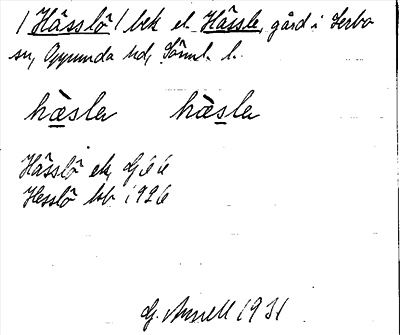 / Hässlö / bek el. Hässle, gård i Lerbo
sn, Oppunda hd, Södml. l.
hæ̀sla hæ̀sla
Hässlö ek,
Hesslö bb 1926
G. Annell 1931